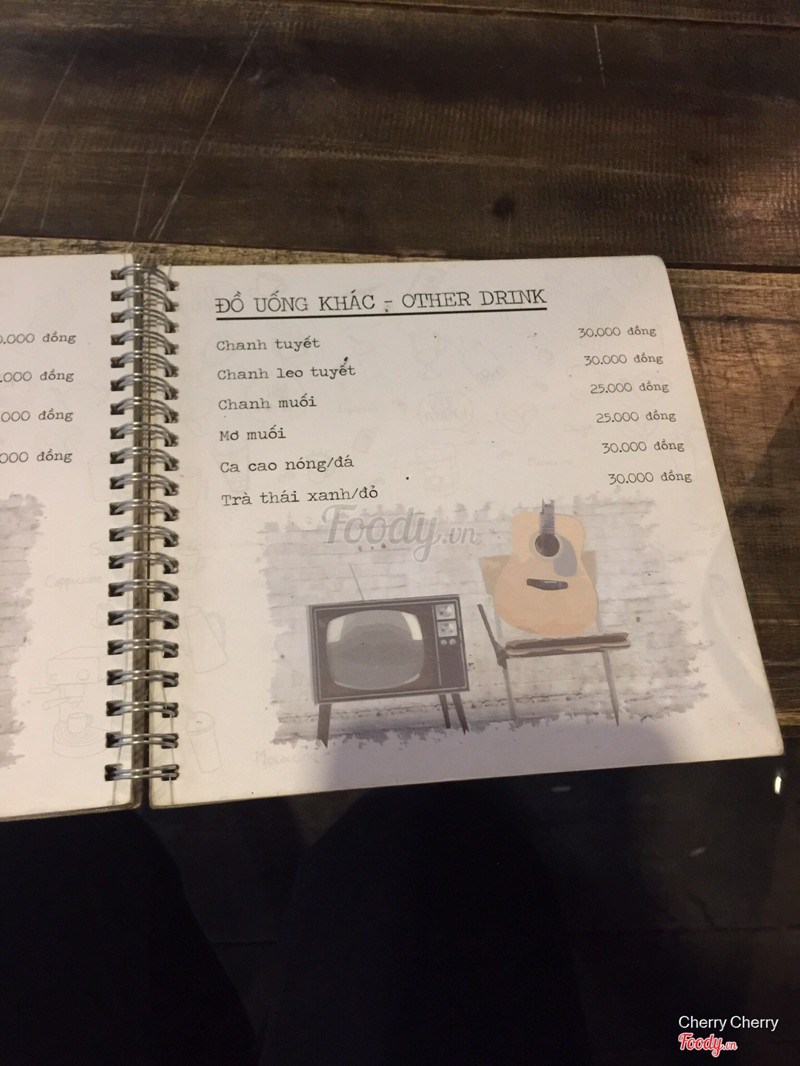 ĐỒ UỐNG KHÁC - OTHER DRINK
Chanh tuyết 30.000 đồng
Chanh leo tuyết 30.000 đồng
Chanh muối 25.000 đồng
Mơ muối 25.000 đồng
Ca cao nóng/đá 30.000 đồng
Trà thái xanh/đỏ 30.000 đồng
.000 đồng
.000 đồng
000 đồng
000 đồng
Foody.vn
Cappuccino
Cherry Cherry
Foody.vn